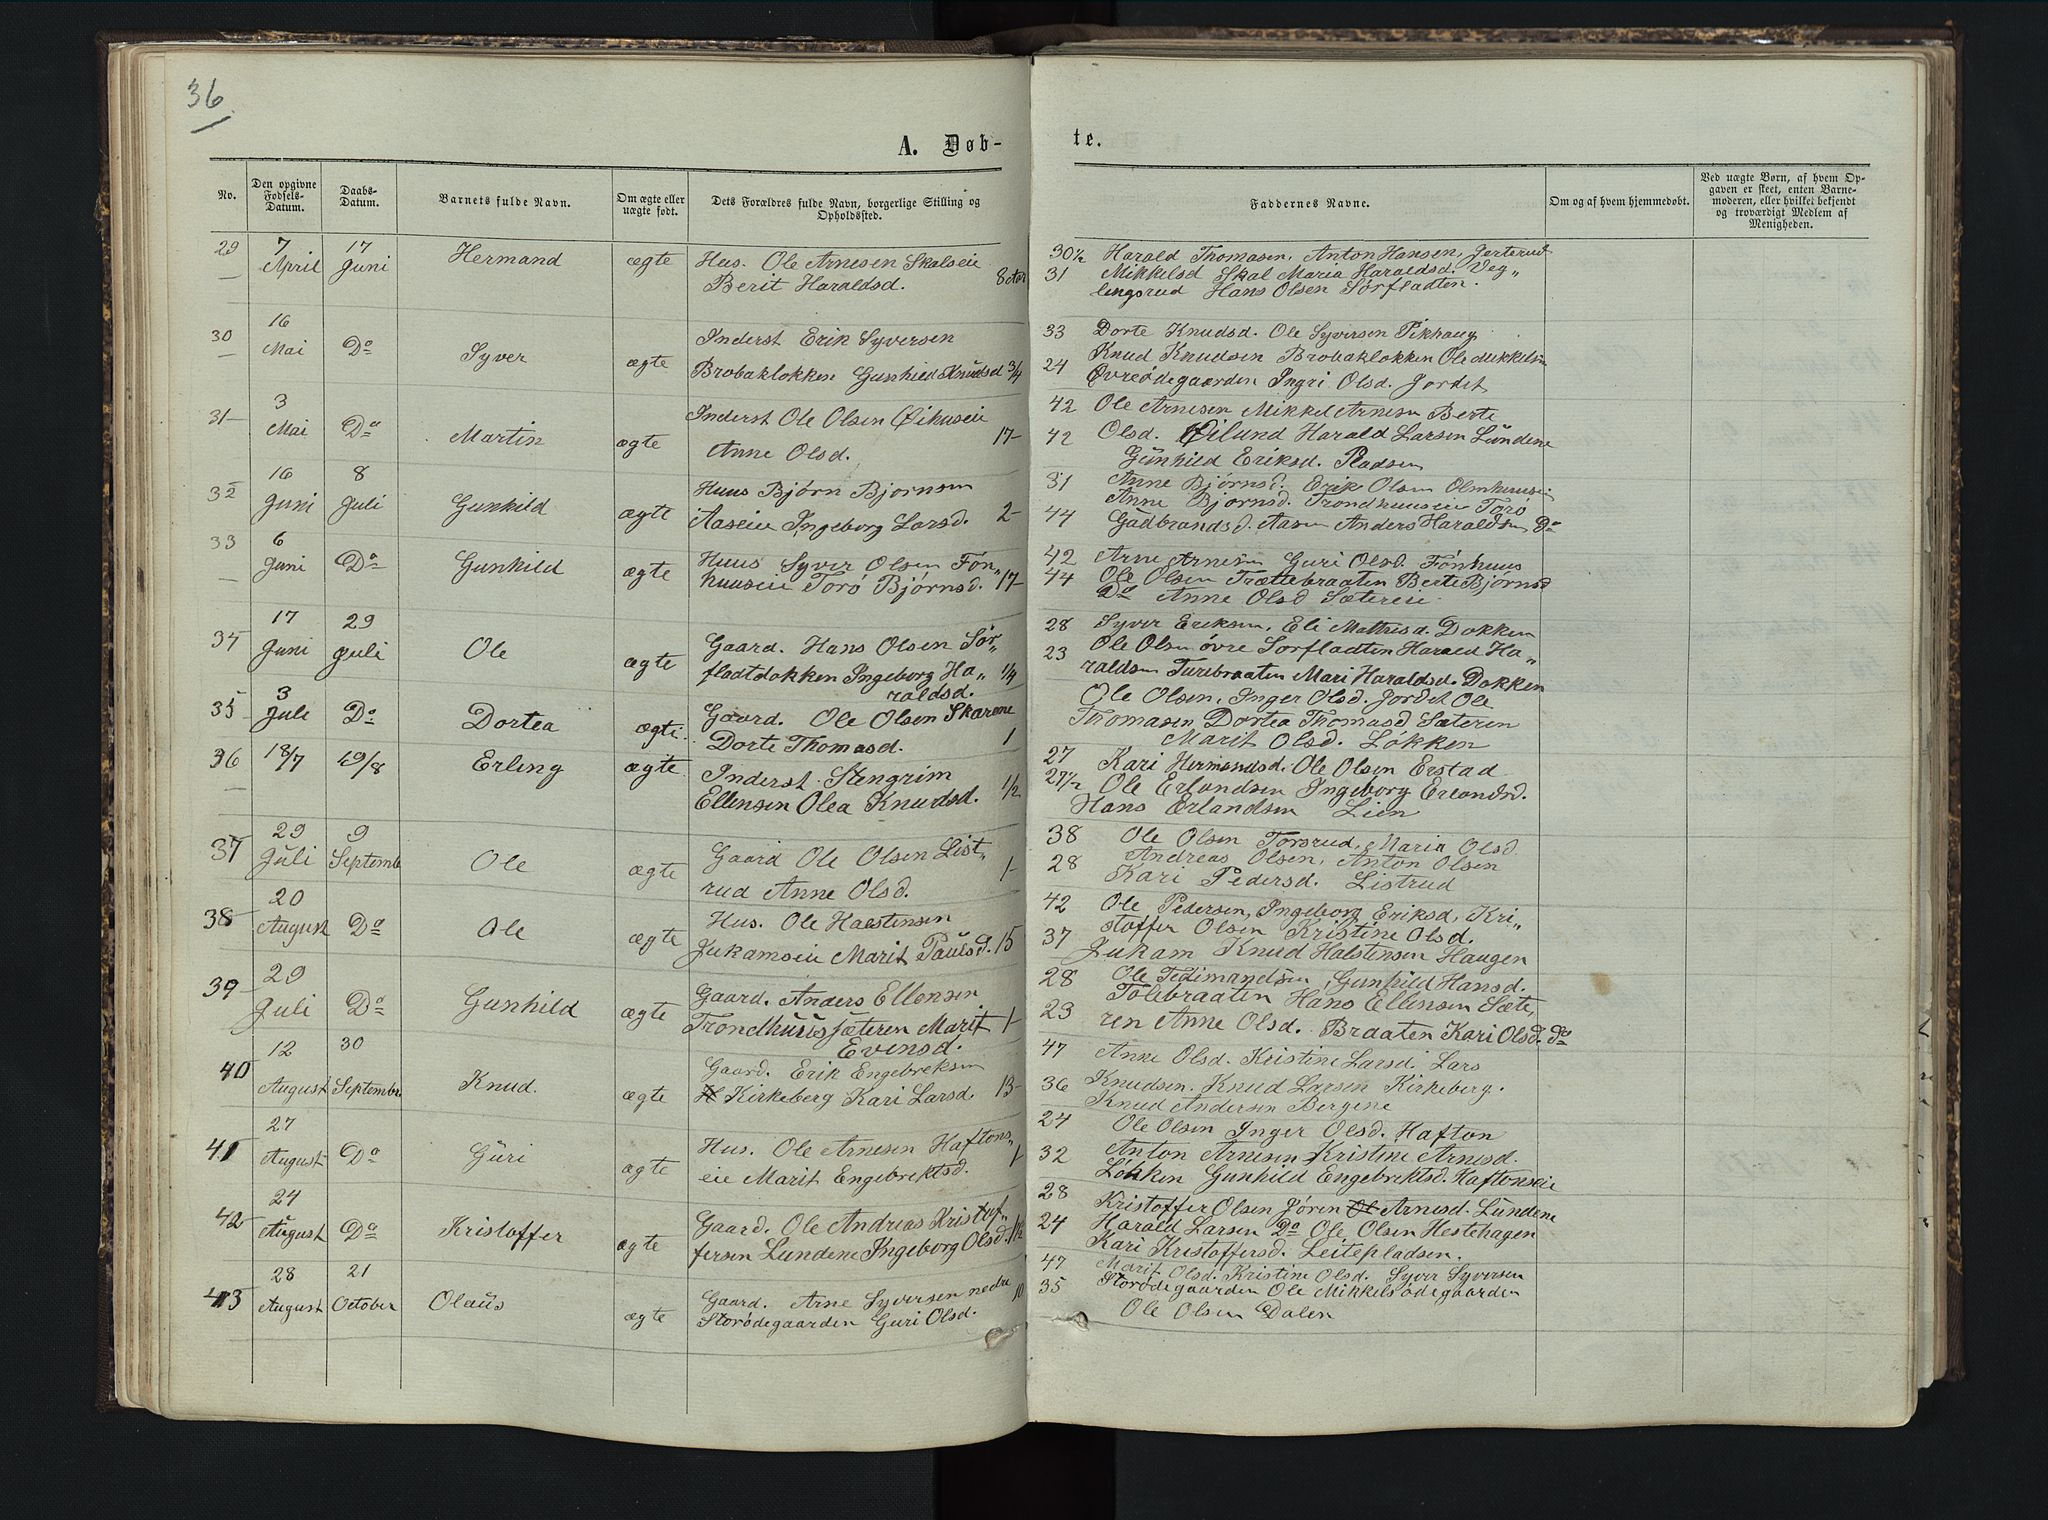 36
A. Døb-
te.
No.
Den opgivne Fødsels-Datum.
Daabs-Datum.
Barnets fulde Navn.
Om ægte eller uægte født.
Dets Forældres fulde Navn, borgerlige Stilling og Opholdssted.
Faddernes Navne.
Om og af hvem hjemmedøbt.
Ved uægte Børn, af hvem Op-
gaven er skeet, enten Barne-
moderen, eller hvilket bekjendt
og troværdigt Medlem af
Menigheden.
29 7 April 17 Juni Hermand ægte Hus. Ole Arnesen Skalseie
Berit Haraldsd.
30½ Harald Thomasen, Anton Hansen, Jerterud
31 Mikkelsd Skal Maria Haraldsd. Veg„
lingsrud Hans Olsen Sørfladten.
30 16 Mai Do Syver ægte Inderst Erik Syversen
Brobakløkken Gunhild Knudsd 3/4
33 Dorte Knudsd. Ole Syversen Pikhaug
24 Knud Knudsen Brobakløkken Ole Mikkelsen
Øvreødegaarden Ingri Olsd. Jordet
31 3 Mai Do Martin ægte Inderst Ole Olsen Øihuseie
Anne Olsd. 17-
42 Ole Arnesen Mikkel Arnesen Berte
42 Olsd. Øilund Harald Larsen Lundene
Gunhild Eriksd. Pladsen
32 16 Juni 8 Juli Gunhild ægte Huus Bjørn Bjornsen
Aaseie Ingeborg Larsd. 2-
31 Anne Bjørnsd. Erik Olsen Olmhuuseie
Anne Bjornsd. Trondhuuseie Torø
44 Gudbrandsd. Aasen Anders Haraldsen Do
33 6 Juni Do Gunhild ægte Huus Syver Olsen Føn„
huuseie Torø Bjørnsd. 17-
42 Arne Arnesen Guri Olsd. Fønhuus
44 Ole Olsen Trættebraaten Berte Bjørnsd
Do Anne Olsd Sætereie
34 17 Juni 29 Juli Ole ægte Gaard. Hans Olsen Sør„
fladtdokken Ingeborg Ha„ 1/4
raldsd.
28 Syver Eriksen, Eli Mathisd. Dokken
23 Ole Olsen øvre Sorfladten Harald Ha„
raldsen Turebraaten Mari Haraldsd. Dokken
35 3 Juli Do Dortea ægte. Gaard. Ole Olsen Skarene
Dorte Thomasd. 1
Ole Olsen, Inger Olsd. Jordet Ole
Thomasen Dortea Thomasd Sæteren
Marit Olsd. Løkken
36 18/7 19/8 Erling ægte Inderst. Stengrim
Ellensen Olea Knudsd. 1/2
27 Kari Hermandsd. Ole Olsen Erstad
27½ Ole Erlandsen Ingeborg Erlandsd.
Hans Erlandsen Lien
37 29 Juli 9 Septembr Ole ægte Gaard Ole Olsen List„
rud Anne Olsd. 1-
38 Ole Olsen Torsrud, Maria Olsd
28 Andreas Olsen, Anton Olsen
Kari Pedersd. Listrud
38 20 August Do Ole ægte Hus. Ole Halstensen
Jukamseie Marit Paulsd. 15
42 Ole Pedersen, Ingeborg Eriksd, Kri„
37 stoffer Olsen Kristine Olsd.
Jukam Knud Halstensen Haugen
39 29 Juli Do Gunhild ægte Gaard. Anders Ellensen
Trondhuussæteren Marit 1-
Evensd.
28 Ole Tedimandsen, Gunhild Hansd.
Tolebraaten Hans Ellensen Sæte„
23 ren Anne Olsd. Braaten Kari Olsd. do
40 12 August 30 Septembr. Knud. ægte Gaard. Erik Engebreksen
Kirkeberg Kari Larsd. 13-
47 Anne Olsd. Kristine Larsd. Lars
36 Knudsen. Knud Larsen Kirkeberg.
Knud Andersen Bergene
41 27 August Do Guri ægte Hus. Ole Arnesen Haftons„
eie Marit Engebrektsd. 1
24 Ole Olsen Inger Olsd. Hafton
32 Anton Arnesen Kristine Arnesd.
Løkken Gunhild Engebrektsd. Haftonseie
42 24 August Do Kristoffer ægte Gaard. Ole Andreas Kristof„
fersen Lundene Ingeborg Olsd. 1½
28 Kristoffer Olsen Jøren Arnesd. Lundene
24 Harald Larsen Do Ole Olsen Hestehagen
Kari Kristoffersd. Leitepladsen.
43 28 August 21 October Olaus ægte Gaard. Arne Syversen nedre 10
Storødegaarden Guri Olsd.
47 Marit Olsd. Kristine Olsd. Syver Syversen
35 Storødegaarden Ole Mikkels ødegaarden
Ole Olsen Dalen